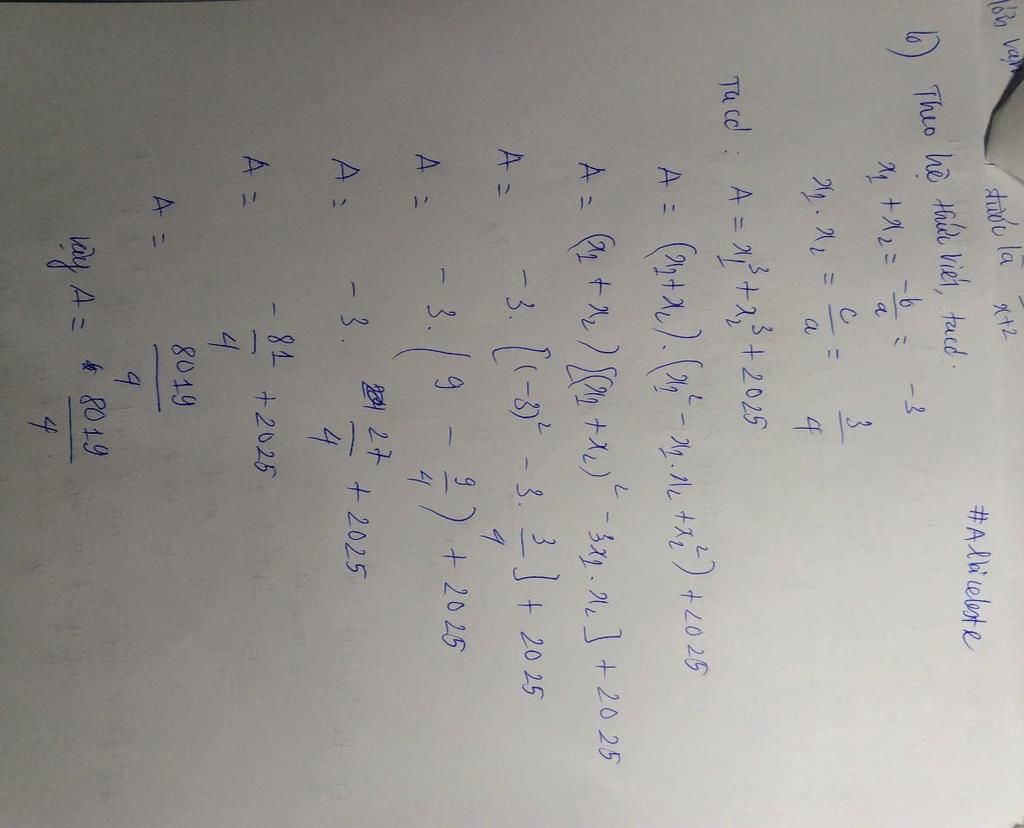 tước là x+2
#Albiceleste
b) Theo hệ thức viét, ta có:
x₁ + x₂ = -b/a = -3
x₁ . x₂ = c/a = 3/4
Ta có: A = x₁³ + x₂³ + 2025
A = (x₁ + x₂) . (x₁² - x₁.x₂ + x₂²) + 2025
A = (x₁ + x₂) [(x₁ + x₂)² - 3x₁.x₂] + 2025
A = -3. [(-3)² - 3. 3/4] + 2025
A = -3. (9 - 9/4) + 2025
A = -3. 27/4 + 2025
A = -81/4 + 2025
A = 8019/4
vậy A = 8019/4